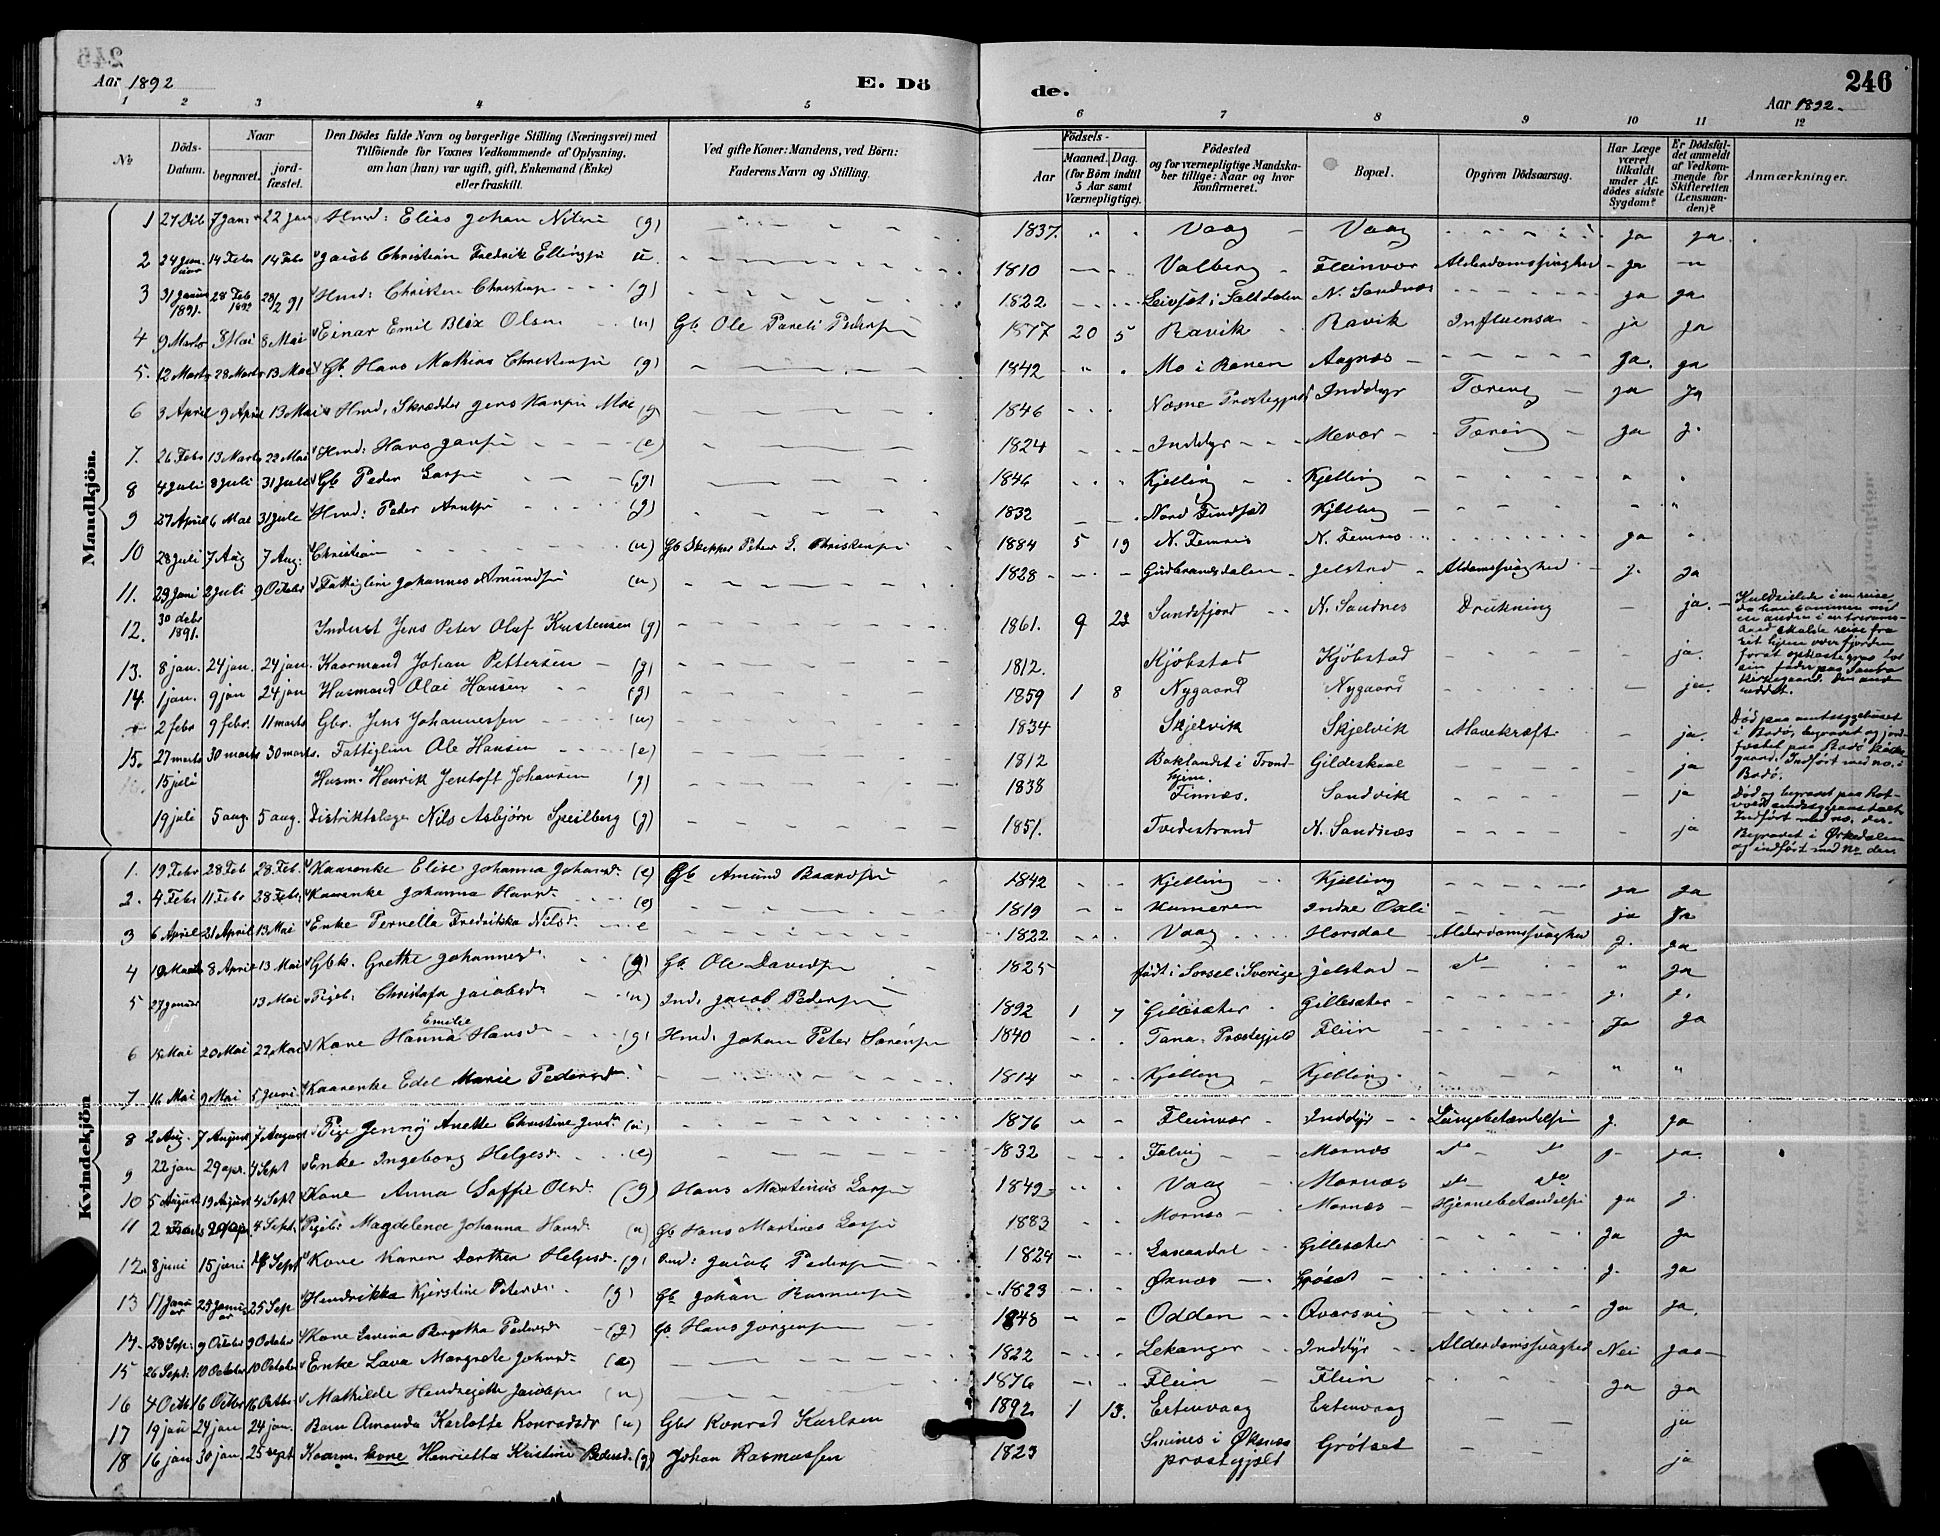 246
Aar 1892
E. Dö
de.
Aar 1892.
1 2 3 4 5 6 7 8 9 10 11 12
No
Döds-Datum.
Naar
begravet.
jord-fæstet.
Den Dödes fulde Navn og borgerlige Stilling (Næringsvei) med
Tilföiende for Voxnes Vedkommende af Oplysning,
om han (hun) var ugift, gift, Enkemand (Enke)
eller fraskilt.
Ved gifte Koner: Mandens, ved Börn:
Faderens Navn og Stilling.
Födsels-
Aar
Maaned. Dag.
(for Börn indtil
5 Aar samt
Værnepligtige).
Födested
og for værnepligtige Mandska-
ber tillige: Naar og hvor
konfirmeret.
Bopæl.
Opgiven Dödsaarsag.
Har Læge
været
tilkaldt
under Af-
dödes sidste
Sygdom?
Er Dödsfal-
det anmeldt
af Vedkom-
mende for
Skifteretten
(Lensman-
den)?
Anmærkninger.
Mandkjön.
1 27 Dib 7 Jan 22 Jan Hmd: Elias Johan Nilsen (g) 1837. Vaag Vaag ja ja
2 24 Januar 14 Febr 14 Febr Jacob Christian Fredrik Ellingsen u. 1810 Valberg Fleinvær Alderdomssvaghed ja
3 31 Januar 1891. 28 Feb 1892 28/2 91 Hmd: Christen Christensen (g) 1822 Leivset i Saltdalen N. Sandnes ja ja
4 9 Marts 8 Mai 8 Mai Einar Emil Blix Olsen (u) Gb. Ole Pareli Pedersen 1877 20 5 Ravik Ravik Influensa ja ja
5. 12 Marts 28 Marts 13 Mai Gb. Hans Mathias Christensen (g) 1842 Mo i Ranen Aagnæs ja. ja
6 3 April 9 April 13 Mai Hmd. Skrædder Jens Hansen Moe (g) 1846 Næsne Præstegjeld Inddyr Tæring ja ja
7. 26 Febr 13 Marts 22 Mai Hmd: Hans Jansen (e) 1824 Inddyr Mevær Tæring ja j.
8 4 Juli 8 Juli 31 Juli Gb Peder Larsen (g) 1846 Kjelling Kjelling
9 27 April 6 Mai 31 Juli Hmd: Peder Arntsen (g) 1832 Nord Finset Kjelling
10 28 Juli 7 Aug 7 Aug. Christian (u) Gb Skipper Peter E. Christensen 1884 5 19 N. Femris N. Femris ja
11. 29 Juni 2 Juli 9 October Fattiglem Johannes Amundsen (u) 1828 Gudbrandsdalen Jelstad Aldomssvaghed j. ja
12. 30 debr 1891. Inderst Jens Peter Olaf Kristensen (g) 1861. 9 23 Sandefjord N. Sandnes Drukning ja.
13. 8 jan. 24 jan. 24 jan Kaarmand Johan Pettersen (g) 1812. Kjøbstad Kjøbstad ja.
14. 1 jan. 9 jan 24 jan Husmand Olai Hansen (g) 1859 1 8 Nygaard Nygaard ja.
2 febr 9 febr. 11 marts Gbr. Jens Johannessen (u) 1834 Skjelvik Skjelvik Mavekræft ja.
15. 27 marts 30 marts 30 marts. Fattiglem Ole Hansen (e) 1812 Baklandet i Trondhjem. Gildeskaal ja
15 juli Husm. Henrik Jentoft Johansen (g) 1838 Finnæs. Sandvik ja
19 juli 5 aug. 5 aug. Distriktslæge Nils Asbjørn Speilberg (g) 1851. Tvedestrand N. Sandnæs ja
Kuldseilede i en reise
da han sammen med
en anden i en
skulde reise fra
sit hjem over fjorden
for at
sin fader paa Sandra
kirkegaard. Den anden
reddet.
Død paa amtssygehuset
i Bodø, begravet og jord-
fæstet paa Bodø kirke-
gaard. Indført med no. i
Bodø.
Død og begravet paa Rot-
vold sindssygeanstalt
Indført med no. der.
Begravet i Ørkedalen
og indført med No der
Kvindekjön
1. 19 Febr 28 Feb 28 Feb. Kaarenke Elise Johanna Johansd. (e) Gb Amund Baardsen 1842 Kjelling Kjelling ja ja
2. 4 Febr 11 Febr 28 Febr. Kaarenke Johanna Hansd. (e) 1819 Kumeren Indre Oxli ja ja
3 6 April 21 April 13 Mai Enke Pernella Fredrikka Nilsd. e 1822 Vaag Horsdal Alderdomssvaghed j. ja
4 19 Marts 8 April 13 Mai Gbk. Grethe Johannesd. (g) Gb Ole Davidsen 1825 født i Sorsel i Sverige Jelstad do ja
5 27 Januar 13 Mai Pigeb. Christofa Jacobsdr (u) Ind: Jacob Pedersen 1892 1 7 Gillesæter Gillesæter j. j.
6 15 Mai 20 Mai 22 Mai Kone Hanna Emilie Hansdr (g) Hmd: Johan Peter Sørensen 1840 Tana Præstegjeld Flein ja ja
7 16 Mai 9 Mai 5 Juni Kaarenke Edel Marie Pedersdr 1814 Kjelling Kjelling
8 2 Aug. 7 August 7 August Pige Jennøy Anette Christine Jensdr (u) 1876 Fleinvær Inddyr Lungebetændelse j. ja
9 22 jan 29 apr. 4 Sept Enke Ingeborg Helgesd. (e) 1832 Falvig Mornæs do do j. ja.
10 5 August 19 August 4 Sept Kone Anna Soffie Olsd. (g) Hans Martinus Larsen 1849 Vaag Mornæs do do
11 2 29 apr. 4 Sept. Pigeb: Magdelena Johanna Hansd. (u) Gb Hans Martines Larsen 1883 Mornæs Mornæs Hjernebetændelse ja j.
12. 8 juni 15 juni 18 Sept Kone Karen Dorthea Helgesd. (g) Ind: Jacob Pedersen 1824 Gillesæter ja ja
13 17 Januar 23 Januar 25 Sep Hendrikka Kjerstine Petersdr. (g) Gb Johan Rasmussen 1823 Øxnæs Grøset j. ja
14. 28 Sep. 9 October 9 October Kone Lavina Bergetha Pedersd. (g) Gb. Hans Jørgensen 1848 Odden Qvarsvig ja ja.
15 26 Sept. 10 October 10 October Enke Lava Margrete Johnsdr (e) 1822 Lekanger Inddyr Alderdomssvaghed Nei jaa
16 4 Octb 16 Octbr 16 Octbr. Mathilde Hendrigitte Jacobsen (u) 1876 Flein Flein ja ja
17 19 jan 24 jan 24 jan. Barn Amanda Karlotte Konradsdr (u) Gbr Konrad Karlsen 1892 1 13. Ertenvaag Ertenvaag ja
18 16 jan 30 jan. 25 sept Kaarm. kone Henrietta Kristine Pedersd. (g) Johan Rasmussen 1823 Smines i Øksnæs præstegjeld Grøtset ja